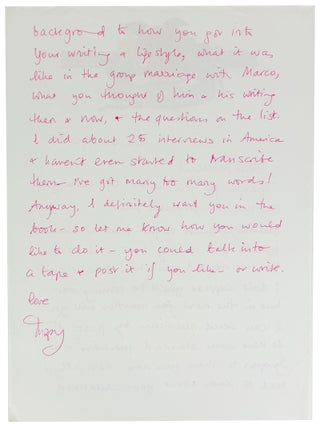 background to how you got into
your writing & lifestyle, what it was
like in the group marriage with Marco,
what you thought of him & his writing
then & now, & the questions on the list.
I did about 25 interviews in America
& haven't even started to transcribe
them - I've got many too many words!
Anyway, I definitely want you in the
book - so let me know how you would
like to do it - you could talk into
a tape & post it if you like - or write.
love